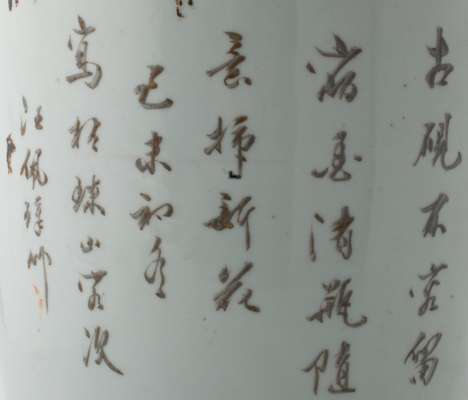 古硯不容留
宿墨清瓶隨
意插新花
己未初冬
寫於珠山客次
汪佩璋作